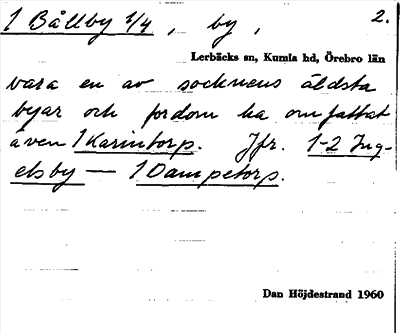 1 Bållby 1/4, by, 2.
Lerbäcks sn, Kumla hd, Örebro län
vara en av socknens äldsta
byar och fordom ha omfattat
även 1 Karintorp. Jfr. 1-2 Ing-
elsby — 1 Dampetorp.
Dan Höjdestrand 1960